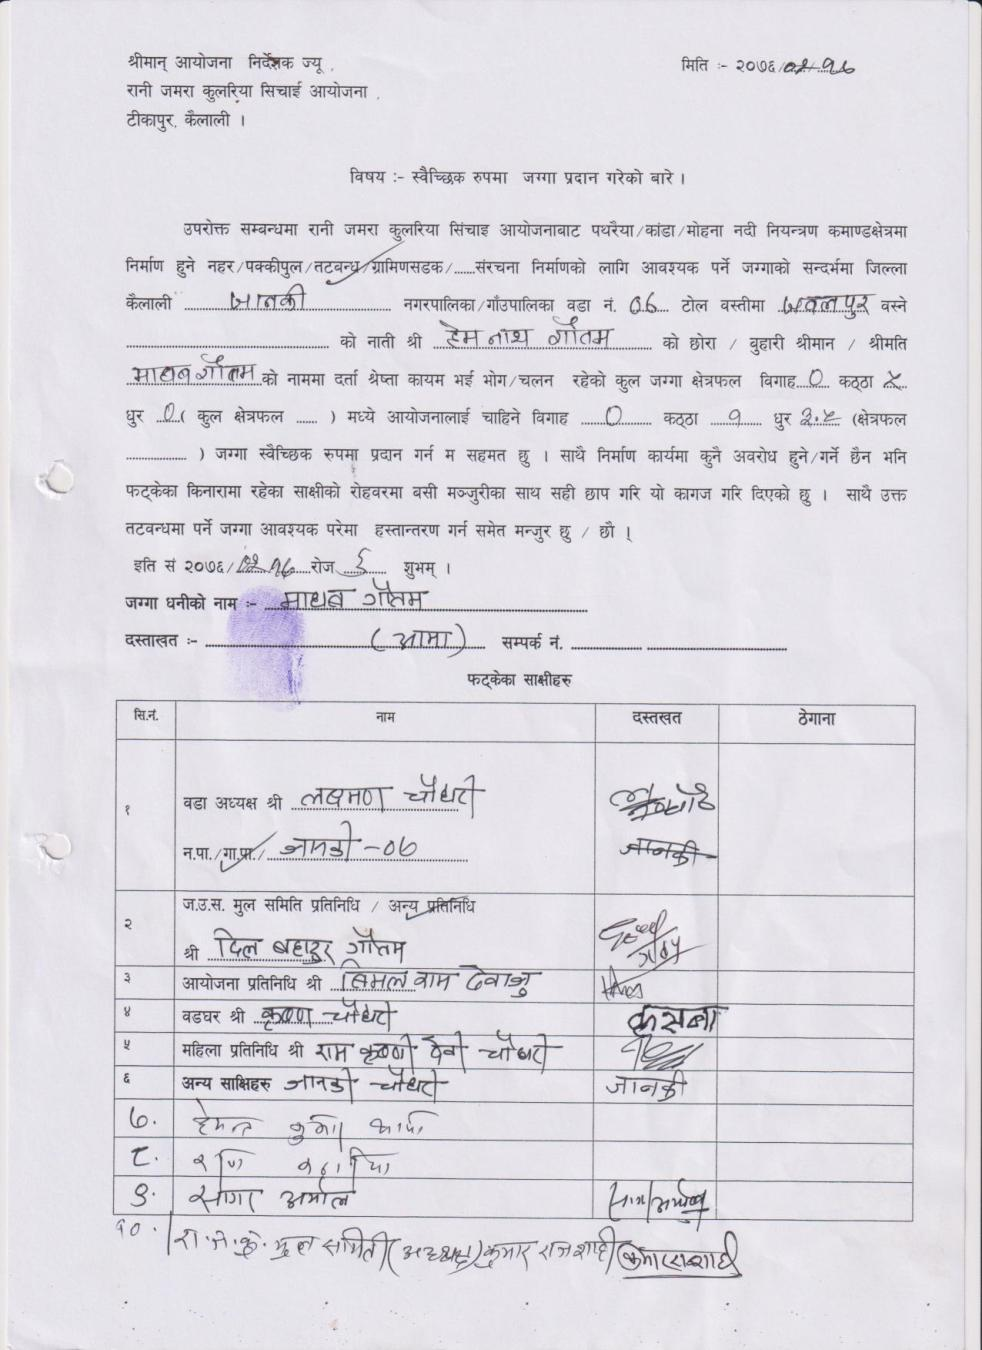 श्रीमान् आयोजना निर्देशक ज्यू , मिति :- २०७६/०२/१६
रानी जमरा कुलरिया सिचाई आयोजना ,
टीकापुर, कैलाली ।
विषय :- स्वैच्छिक रुपमा जग्गा प्रदान गरेको बारे ।
उपरोक्त सम्बन्धमा रानी जमरा कुलरिया सिंचाइ आयोजनाबाट पथरैया/कांडा/मोहना नदी नियन्त्रण कमाण्डक्षेत्रमा
निर्माण हुने नहर/पक्कीपुल/तटबन्ध/ग्रामिणसडक/......संरचना निर्माणको लागि आवश्यक पर्ने जग्गाको सन्दर्भमा जिल्ला
कैलाली जानकी नगरपालिका/गाँउपालिका वडा नं. ०६ टोल वस्तीमा वस्ने
को नाती श्री हेम नाथ गौतम को छोरा / बुहारी श्रीमान / श्रीमति
माधब गौतम को नाममा दर्ता श्रेष्ता कायम भई भोग/चलन रहेको कुल जग्गा क्षेत्रफल विगाह ० कठ्ठा ५
धुर ० ( कुल क्षेत्रफल ...... ) मध्ये आयोजनालाई चाहिने विगाह ० कठ्ठा १ धुर ३.५ (क्षेत्रफल
................ ) जग्गा स्वैच्छिक रुपमा प्रदान गर्न म सहमत छु । साथै निर्माण कार्यमा कुनै अवरोध हुने/गर्ने छैन भनि
फट्केका किनारामा रहेका साक्षीको रोहवरमा बसी मञ्जुरीका साथ सही छाप गरि यो कागज गरि दिएको छु । साथै उक्त
तटवन्धमा पर्ने जग्गा आवश्यक परेमा हस्तान्तरण गर्न समेत मन्जुर छु / छौ ।
इति सं २०७६/०२/१६ रोज ६ शुभम् ।
जग्गा धनीको नाम :- माधब गौतम
दस्ताखत :- (आमा) सम्पर्क नं.
फट्केका साक्षीहरु
सि.नं. नाम दस्तखत ठेगाना
१ वडा अध्यक्ष श्री लक्ष्मण चौधरी
न.पा./गा.पा./ जानकी -०६ जानकी
२ ज.उ.स. मुल समिति प्रतिनिधि / अन्य प्रतिनिधि
श्री दिल बहादुर गौतम
३ आयोजना प्रतिनिधि श्री बिमल वाम देवाजु
४ वडघर श्री कृष्ण चौधरी कृसना
५ महिला प्रतिनिधि श्री राम कृष्णी देवी चौधरी
६ अन्य साक्षिहरु जानकी चौधरी जानकी
७. हेमन्त
८.
९. सागर अर्याल
१०. रा.ज.कु. मुल समिती (अध्यक्ष) कुमार राजशाही